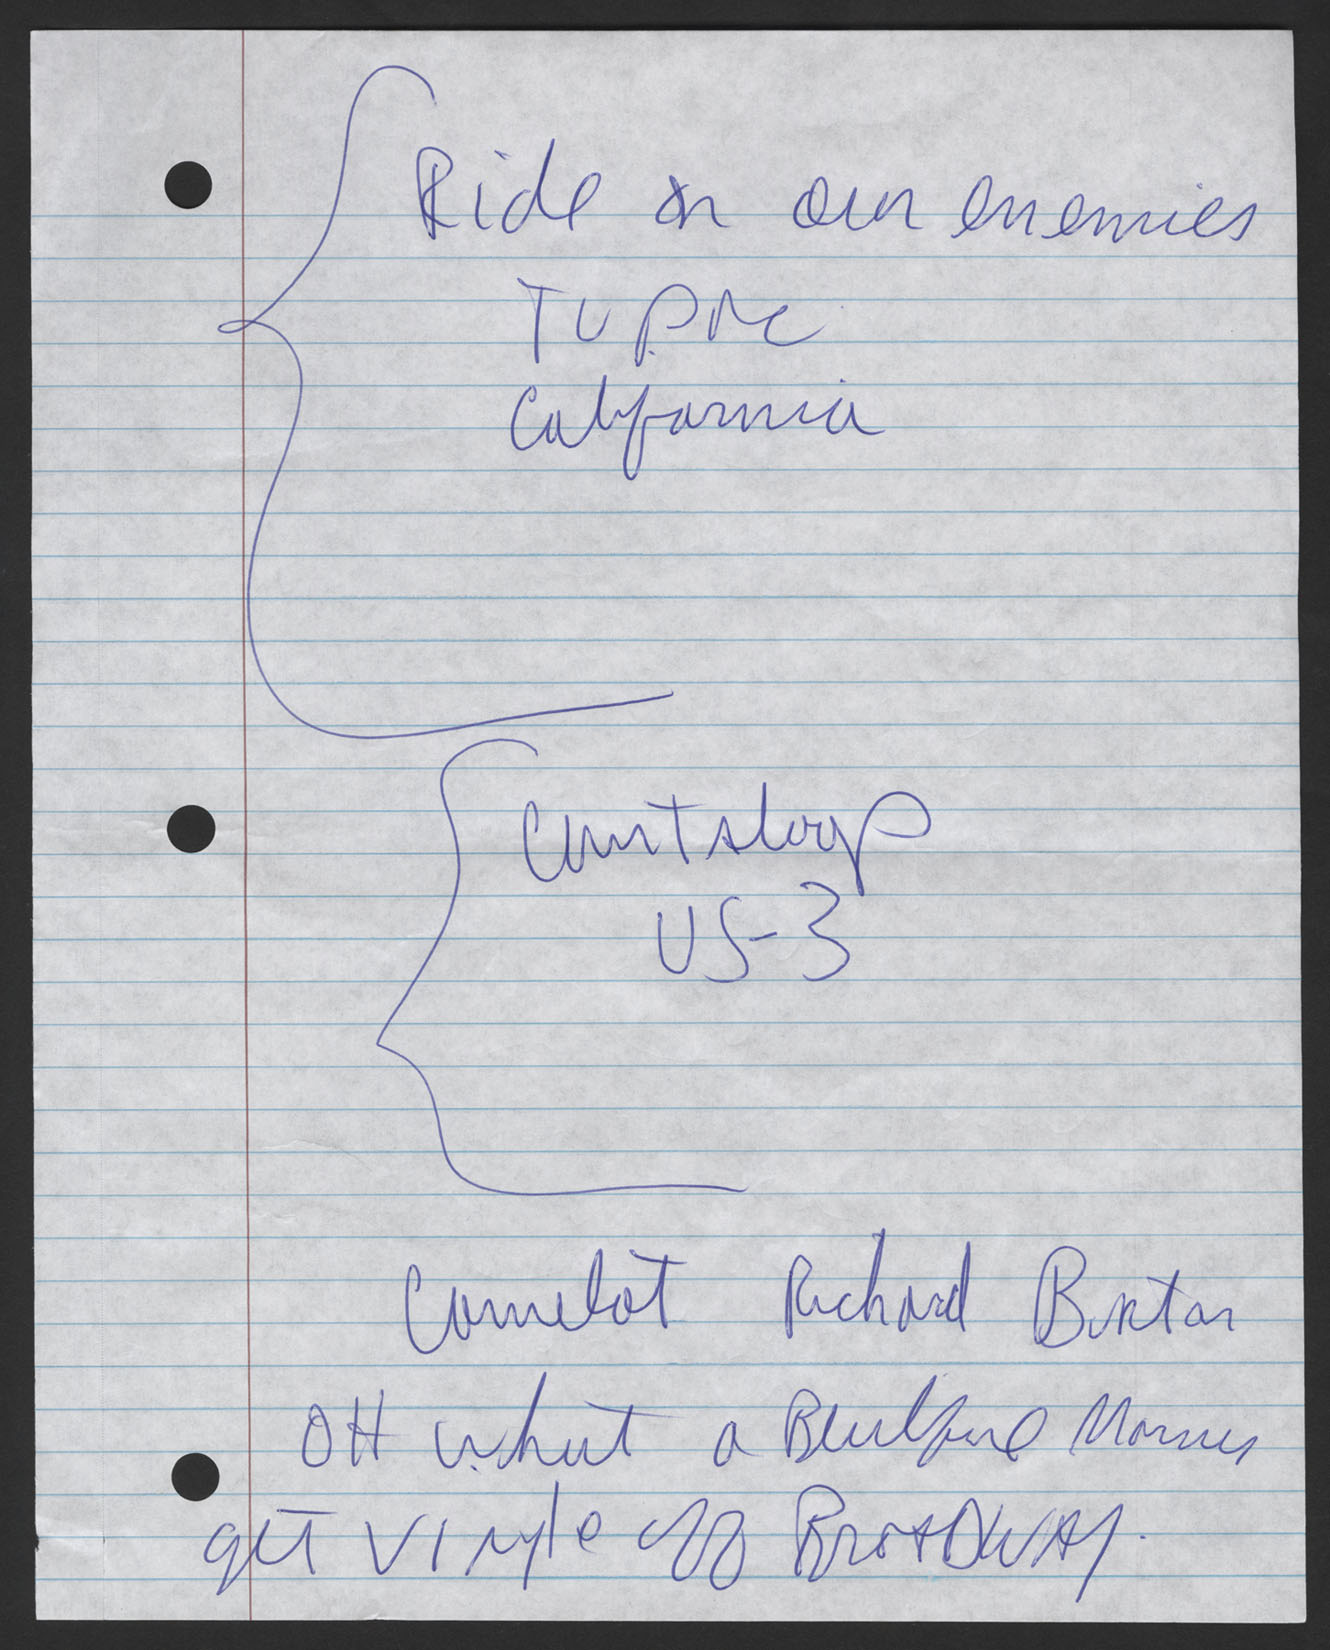 Ride on our enemies
Tupac
California
Cantaloop
US-3
Camelot Richard Burton
OH what a Beautiful Morning
get vinyle off Broadway.